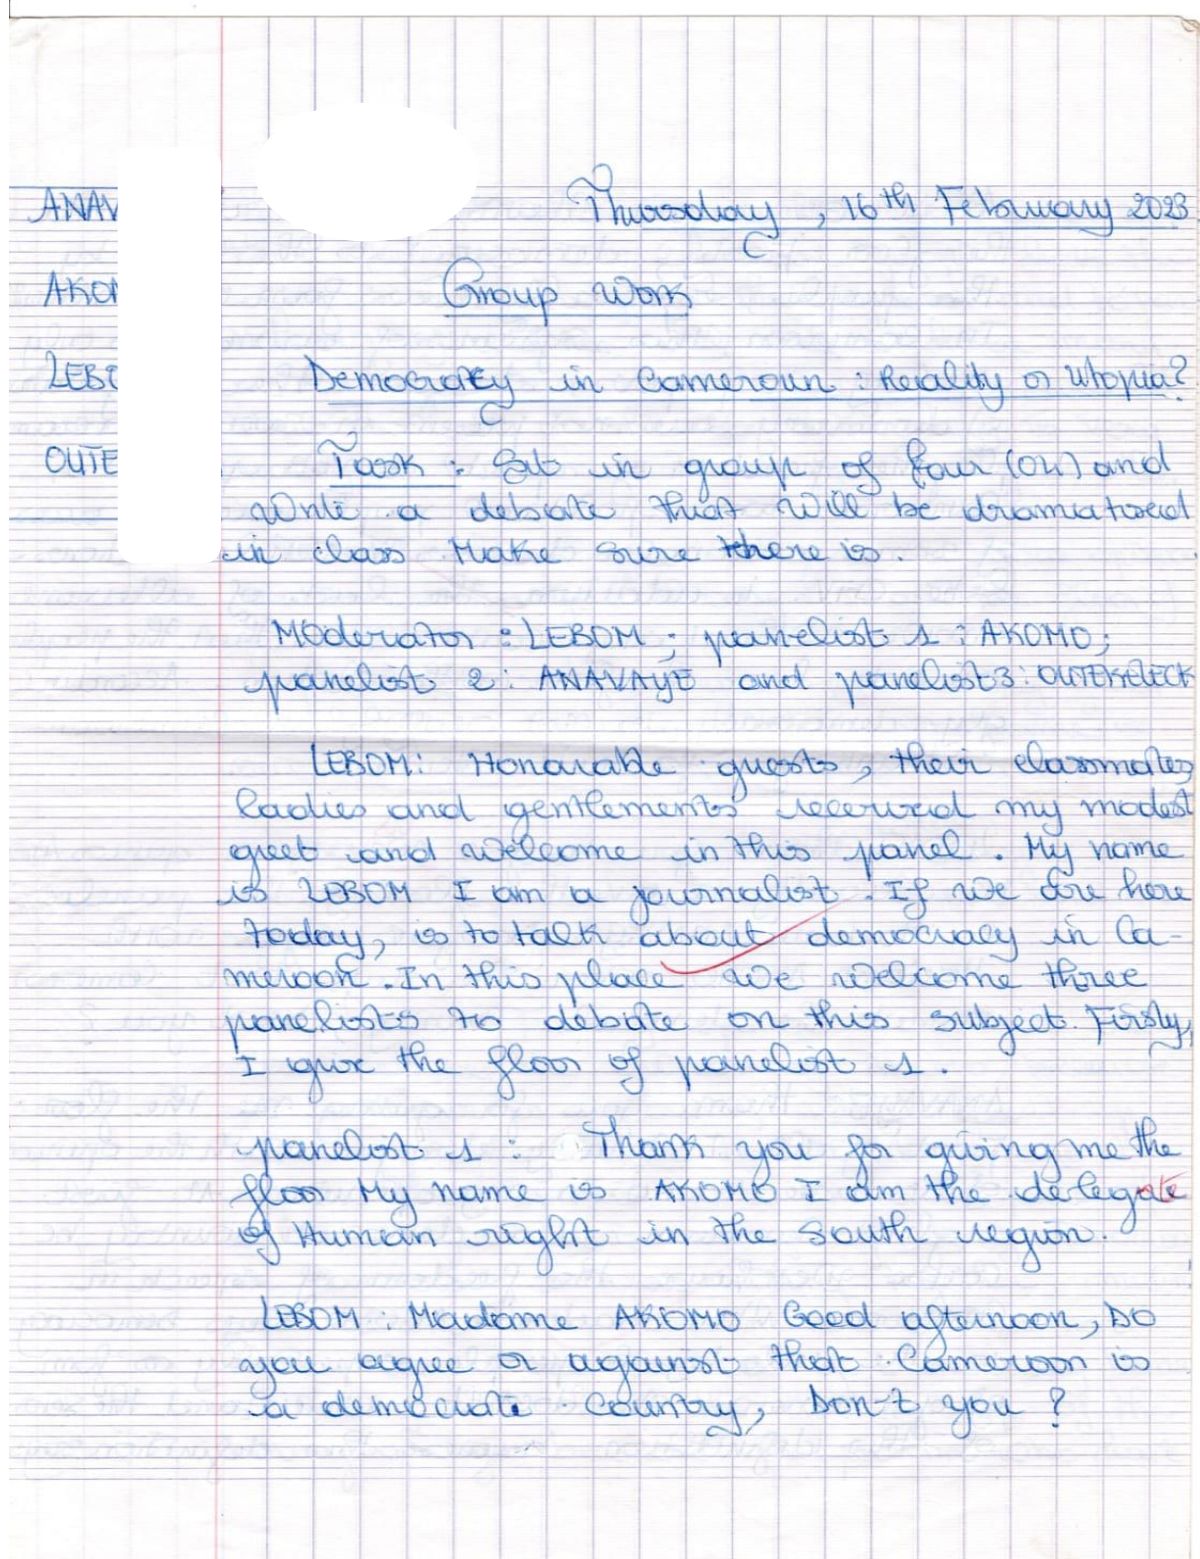 ANAV
Thursday, 16th February 2023
AKOM
Group Work
LEBO
Democracy in Cameroun : Reality or Utopia?
OUTE
Task : Sit in group of four (04) and
write a debate that will be dramatised
in class Make sure there is.
Moderator : LEBOM ; panelist 1 : AKOMO;
panelist 2 : ANAVAYE and panelist 3 : OUTEKELECK
LEBOM : Honorable guests, their classmates,
ladies and gentlements received my modest
greet and welcome in this panel. My name
is LEBOM I am a journalist. If we are here
today, is to talk about democracy in Ca-
meroon. In this place we welcome three
panelists to debate on this subject. Firsly,
I give the floor of panelist 1.
panelist 1 : Thank you for giving me the
floor My name is AKOMO I am the delegate
of Human right in the South region.
LEBOM : Madame AKOMO Good afternoon, Do
you agree or against that Cameroon is
a democrate country, Don't you ?